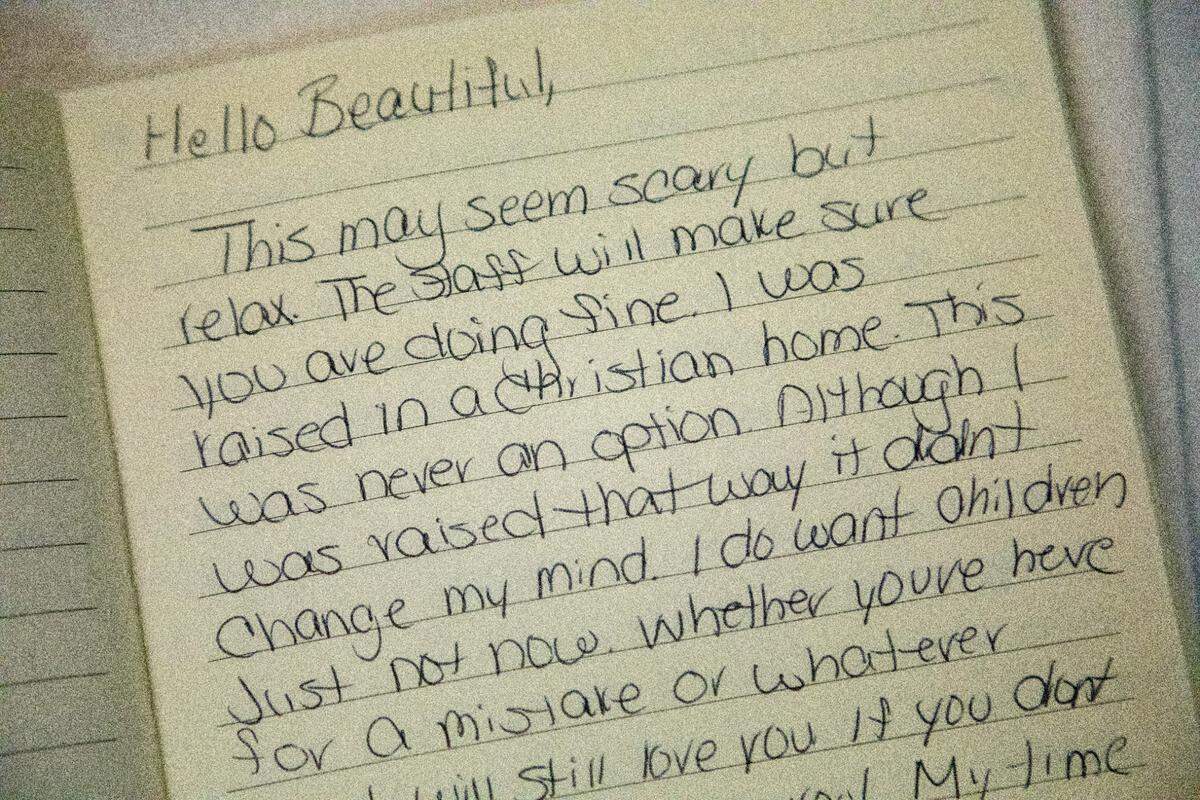 Hello Beautiful,
This may seem scary but
relax. The staff will make sure
you are doing fine. I was
raised in a Christian home. This
was never an option. Although I
was raised that way it didnt
Change my mind. I do want children
Just not now. Whether youre here
for a mistake or whatever
will still love you if you dont
My time